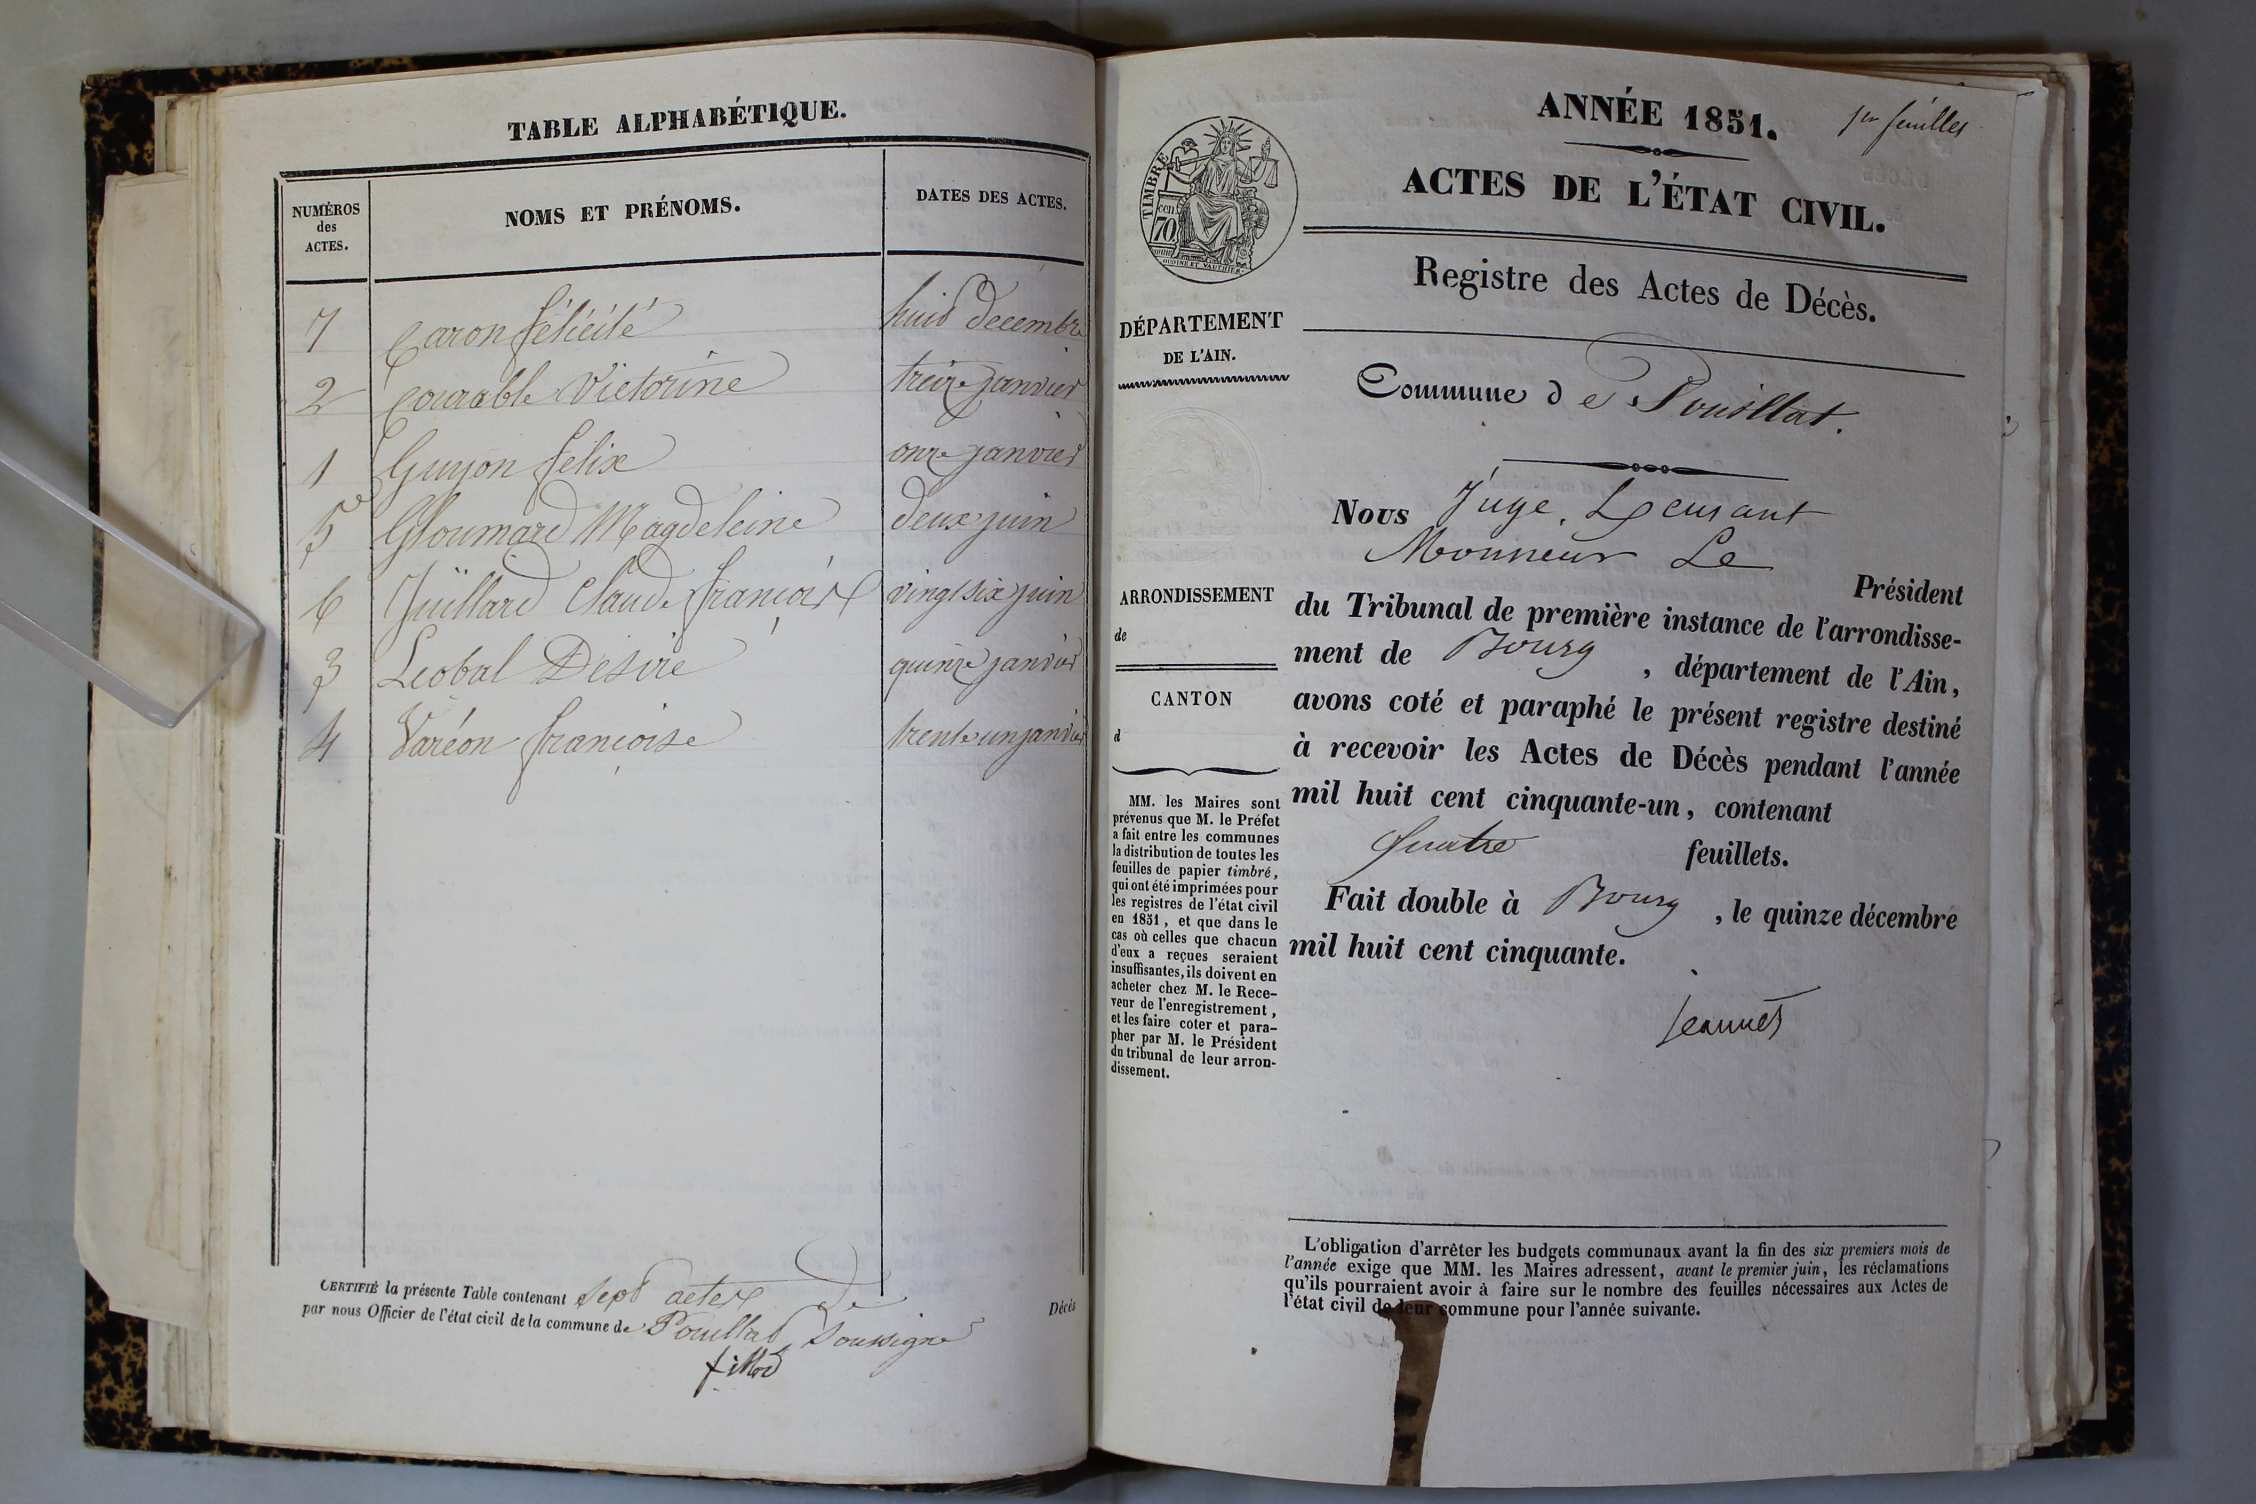 TABLE ALPHABÉTIQUE.
NUMÉROS
des
ACTES.
NOMS ET PRÉNOMS.
DATES DES ACTES.
7 Caron félicité huit decembre
2 Courable Victorine treize janvier
1 Guyon félix onze janvier
5 Gloumard Magdeleine deux juin
6 Juillard Claude françois vingt six juin
3 Leobal Désiré quinze janvier
4 Varéon françoise trente un janvier
CERTIFIÉ la présente Table contenant sept actes de
par nous Officier de l'état civil de la commune de Pouillat soussigné
Décès
ANNÉE 1851.
1er feuillet
ACTES DE L'ÉTAT CIVIL.
TIMBRE
cen
70
OUDINÉ ET VAUTHIER.
Registre des Actes de Décès.
DÉPARTEMENT
DE L'AIN.
Commune de Pouillat.
Nous Juge,
Monsieur Le
Président
du Tribunal de première instance de l'arrondisse-
ment de Bourg, département de l'Ain,
avons coté et paraphé le présent registre destiné
à recevoir les Actes de Décès pendant l'année
mil huit cent cinquante-un, contenant
quatre feuillets.
Fait double à Bourg, le quinze décembre
mil huit cent cinquante.
Jeannet
ARRONDISSEMENT
de
CANTON
d
MM. les Maires sont
prévenus que M. le Préfet
a fait entre les communes
la distribution de toutes les
feuilles de papier timbré,
qui ont été imprimées pour
les registres de l'état civil
en 1851, et que dans le
cas où celles que chacun
d'eux a reçues seraient
insuffisantes, ils doivent en
acheter chez M. le Rece-
veur de l'enregistrement,
et les faire coter et para-
pher par M. le Président
du tribunal de leur arron-
dissement.
L'obligation d'arrêter les budgets communaux avant la fin des six premiers mois de
l'année exige que MM. les Maires adressent, avant le premier juin, les réclamations
qu'ils pourraient avoir à faire sur le nombre des feuilles nécessaires aux Actes de
l'état civil de leur commune pour l'année suivante.